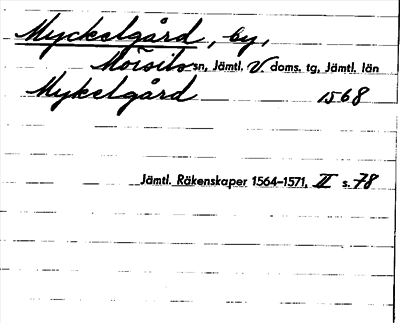 Myckelgård, by,
Mörsils sn, Jämtl. V. doms. tg, Jämtl. län
Mykelgård 1568
Jämtl. Räkenskaper 1564-1571, II s. 78